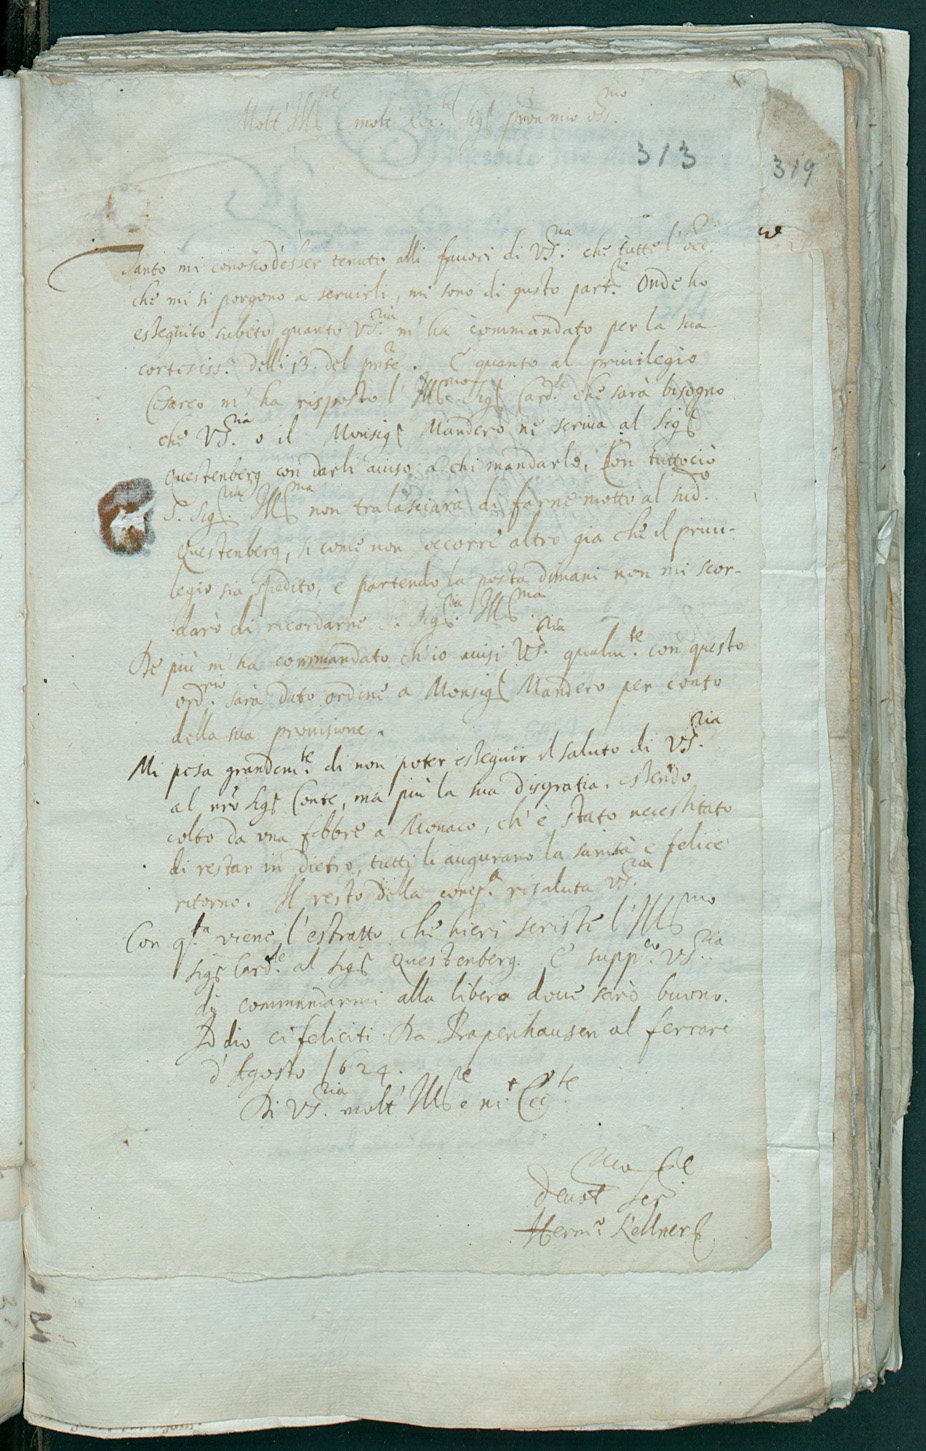 Molt' Ill.re e molt' Ecc.te Sig.r pron mio oss.mo
313
319
Tanto mi conosco d'esser tenuto alli favori di VS.ria che tutte l'occ.ni
che mi si porgono a servirli, mi sono di gusto part.re Onde ho
esseguito subito quanto VS.ria m'ha commandato per la sua
cortesiss.a delli 13. del pnte. E quanto al privilegio
Cesareo m'ha risposto l'Ill.mo Sig.r Card.le che sarà bisogno
che VS.ria o il Monsig.r Mandero ne scriva al Sig.r
Questenberg con darli aviso a chi mandarlo, Con tuttociò
S. Sig.ria Ill.ma non tralasciarà di farne motto al sud.o
Questenberg, si come non occorre altro gia che il privi-
legio sia spedito, e partendo la posta dimani non mi scor-
darò di ricordarne S. Sig.ria Ill.ma
De più m'ha commandato ch'io avisi VS.ria qualm.te con questo
ord.rio sarà dato ordine a Monsig.r Mandero per conto
della sua provisione.
Mi pesa grandem.te di non poter esseguir il saluto di VS.ria
al nro Sig.r Conte, ma più la sua disgratia, essendo
colto da una febbre a Monaco, ch'è stato necessitato
di restar in dietro, tutti li augurano la sanità e felice
ritorno. Il resto della comp.a risaluta VS.ria
Con q.ta viene l'estratto che hieri scriste l'Ill.mo
Sig.r Card.le al Sig.r Questenberg. E supp.co VS.ria
di commandarmi alla libera dove sarò buono.
Iddio ci feliciti. Da Papenhausen al ferrare
d'Agosto 1624.
Di VS.ria molt' Ill.re e m.t Ecc.te
devot ser
Herm.o Kellner